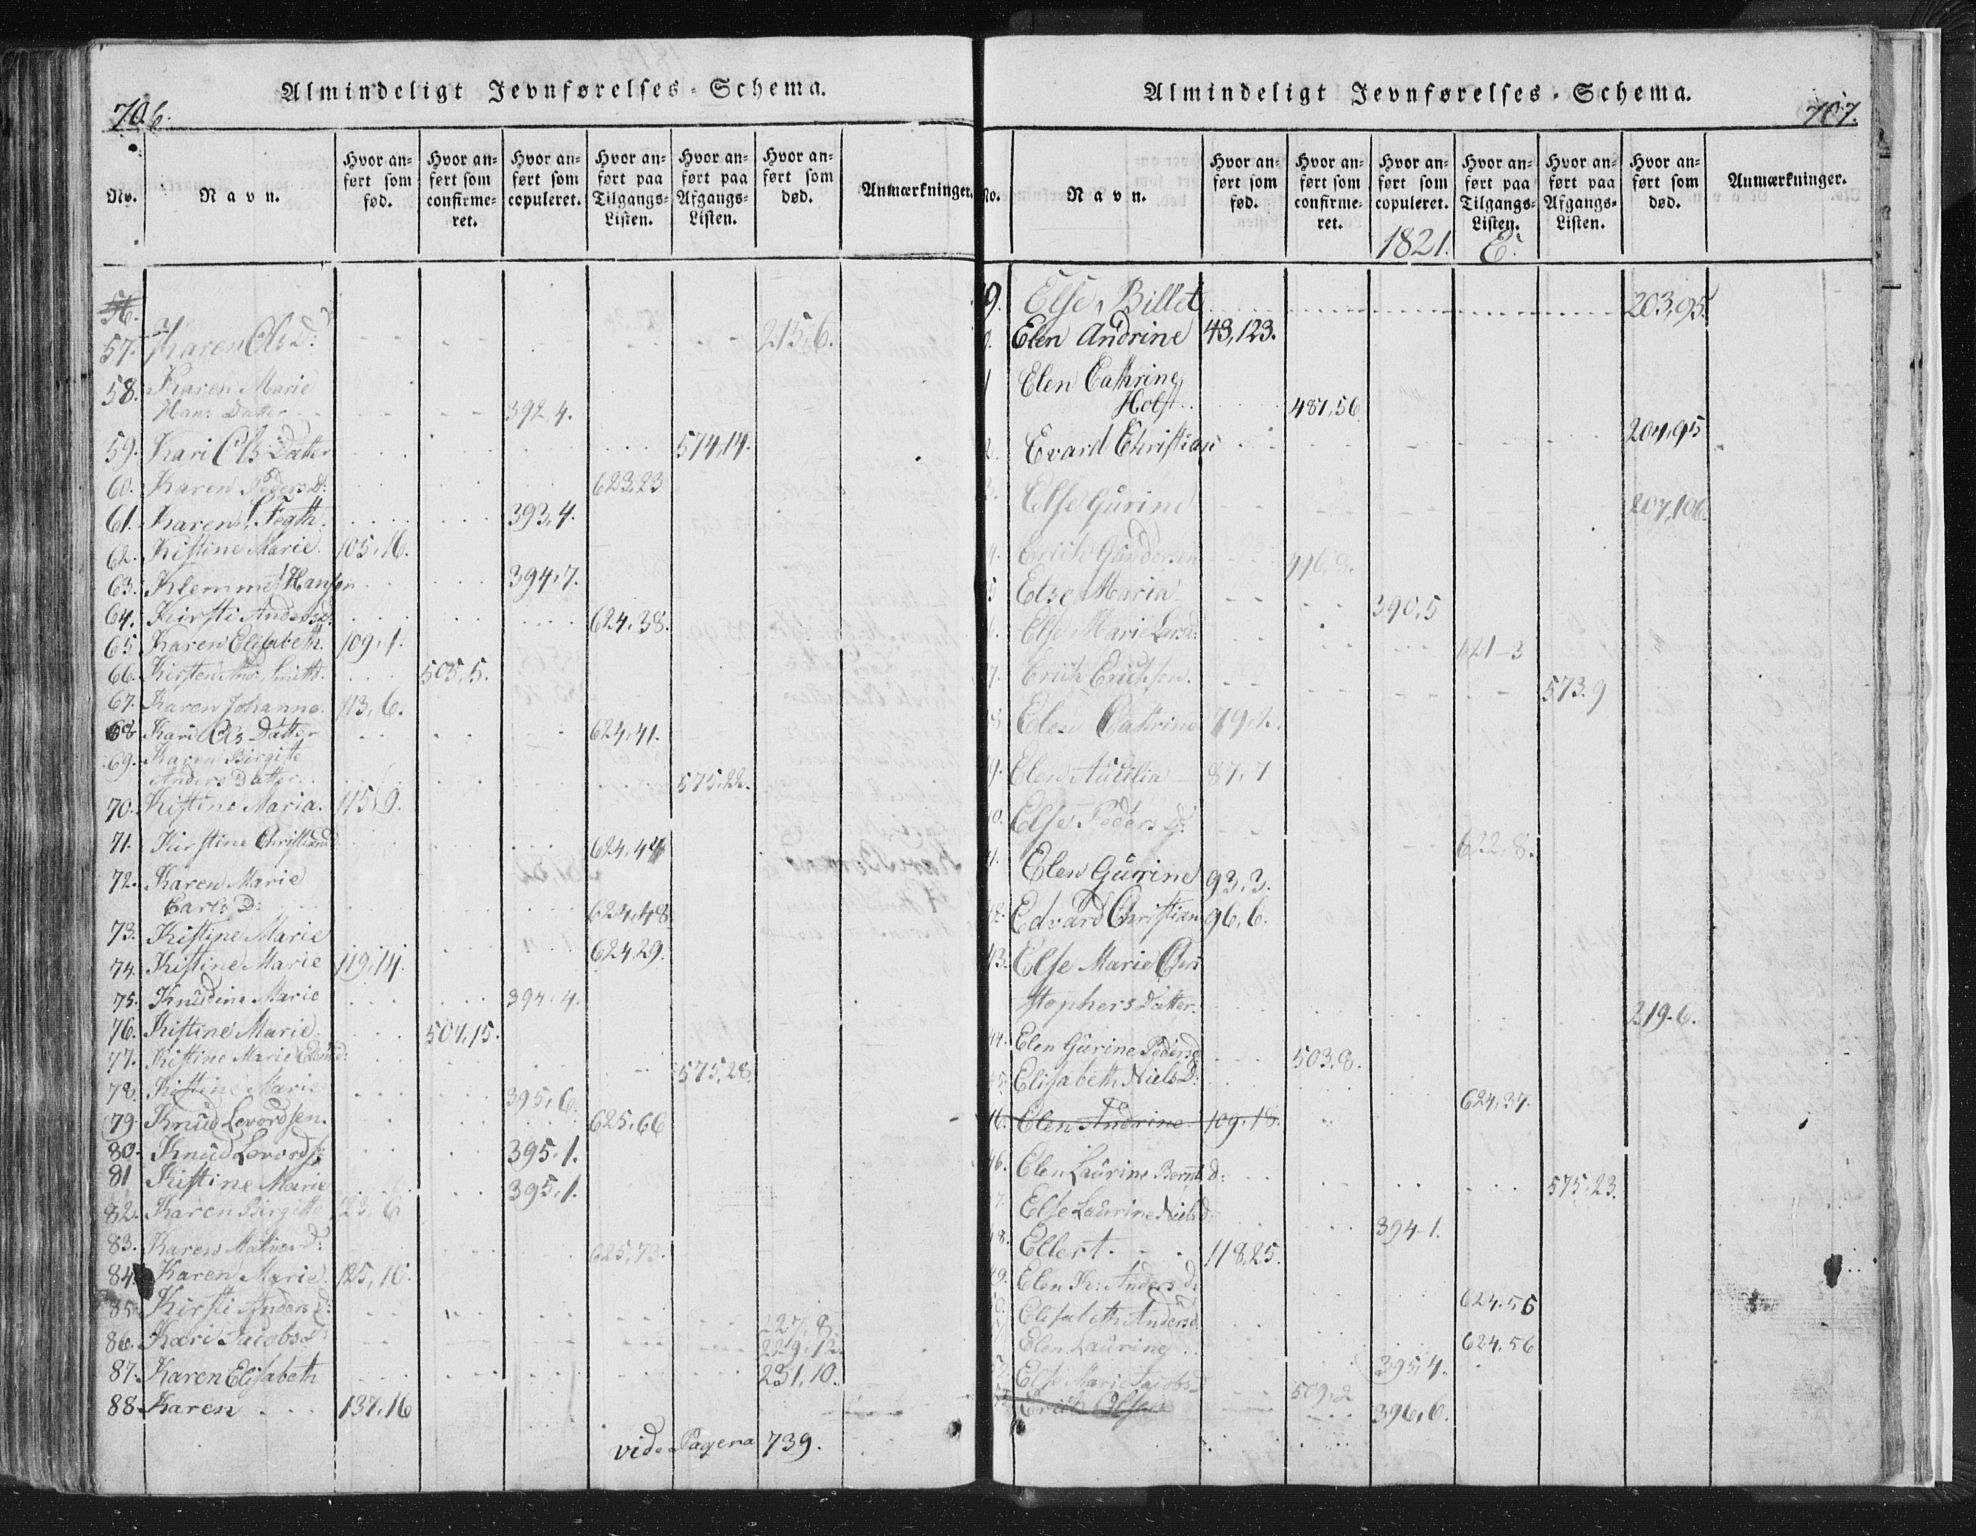 706.
Almindeligt Jevnførelses-Schema.
No.
Navn.
Hvor anført som fød.
Hvor anført som confirmeret.
Hvor anført som copuleret.
Hvor anført paa Tilgangs-Listen.
Hvor anført paa Afgangs-Listen.
Hvor anført som død.
Anmærkninger.
56.
57. Karen Ols D: 215,6.
58. Karen Marie
Hans Datter 392.4.
59. Kari Ols Datter 574,14.
60. Karen Peders D: 623,23
61. Karen Fegth. 393,4.
62. Kistine Marie. 105,16.
63. Klemmet Hansen 394,7.
64. Kirsti Andersd: 624,38.
65 Karen Elisabeth. 109,1.
66. Kirsten And: Smith. 505,5.
67. Karen Johanne. 113,6.
68 Kari Ols Datter 624,41.
69. Karen Birgite
Anders Datter. 575,22.
70. Kistine Maria. 115,9.
71. Kirstine Christiansd 624,44
72. Karen Marie
Carls D: 624,48
73. Kistine Marie 624,29.
74. Kistine Marie 119,14.
75. Knudine Marie 394,4.
76. Kistine Marie. 507,15.
77. Kistine Marie 575,28.
78. Kistine Marie 395,6.
79. Knud Levordsen. 625,66
80. Knud Levords: 395,1.
81 Kistine Marie 395,1.
82. Karen Birgitte 123,6
83. Karen D: 625,73.
84. Karen Marie. 125,10.
85. Kirsti Anders D: 227,8.
86. Kari Jacobs D: 229,12.
87. Karen Elisabeth 231,10.
88 Karen 137,16
vide Pagena 739.
707.
Almindeligt Jevnførelses-Schema.
No.
Navn.
Hvor anført som fød.
Hvor anført som confirmeret.
Hvor anført som copuleret.
Hvor anført paa Tilgangs-Listen.
Hvor anført paa Afgangs-Listen.
Hvor anført som død.
Anmærkninger.
1821. E.
9. Else Billet 203,95.
Elen Andrine 43,123.
Elen Cathrine
Holst. 487,56
Evard Christian 204,95
Else Gurine 207,106.
Erich Gundersen 496,8.
Else Maria 390,5
Else Marie Larsd: 621-3
Erich Erichsen. 573.9
Elen Cathrine 79,2.
Elen 87,7
Else Peders D: 622,8.
Elen Gurine 93,3.
Edvard Christian 96,6.
43. Else Marie Chri
stophers Datter. 219.6.
44. Elen Gurine Pedersd 503,8.
45. Elisabeth Niels D: 624,37.
46. Elen Andrine. 109,18.
46. Elen Laurine d: 575,23.
Else Laurine Nielsd: 394-1.
Ellert. 118,25.
Elen K: Anders d: 624,56
Elisabeth Andersd 624,56
Elen Laurine 395,4.
Else Marie Jacobsd 509,2
Erich Olsen 396,6.